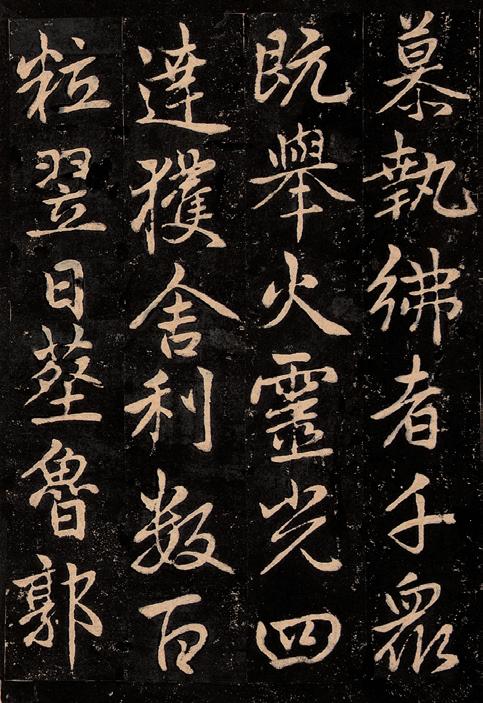 慕執紼者千衆
既舉火靈光四
達獲舍利数百
粒翌日塟魯郭